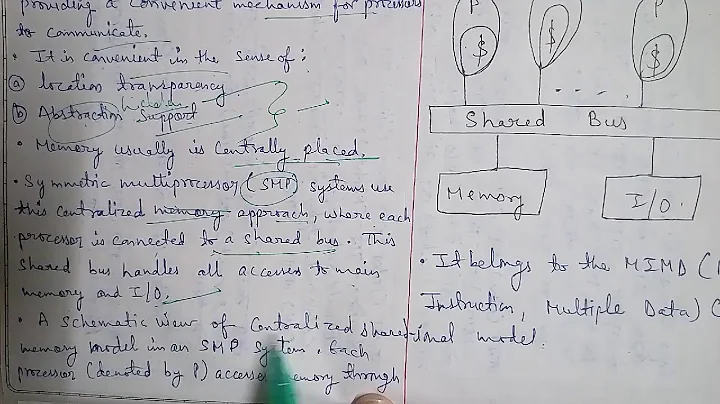 providing a convenient mechanism for processors
to communicate.
• It is convenient in the sense of :
(a) location transparency
hidden
(b) Abstraction Support
• Memory usually is Centrally placed.
• Symmetric multiprocessor (SMP) systems use
this centralized memory approach, where each
processor is connected to a shared bus. This
shared bus handles all accesses to main
memory and I/O.
• A schematic view of centralized shared
memory model in an SMP system. Each
processor (denoted by P) accesses memory through
P
P
$
$
$
Shared Bus
Memory
I/O.
• It belongs to the MIMD (
Instruction, Multiple Data) (
tional model.